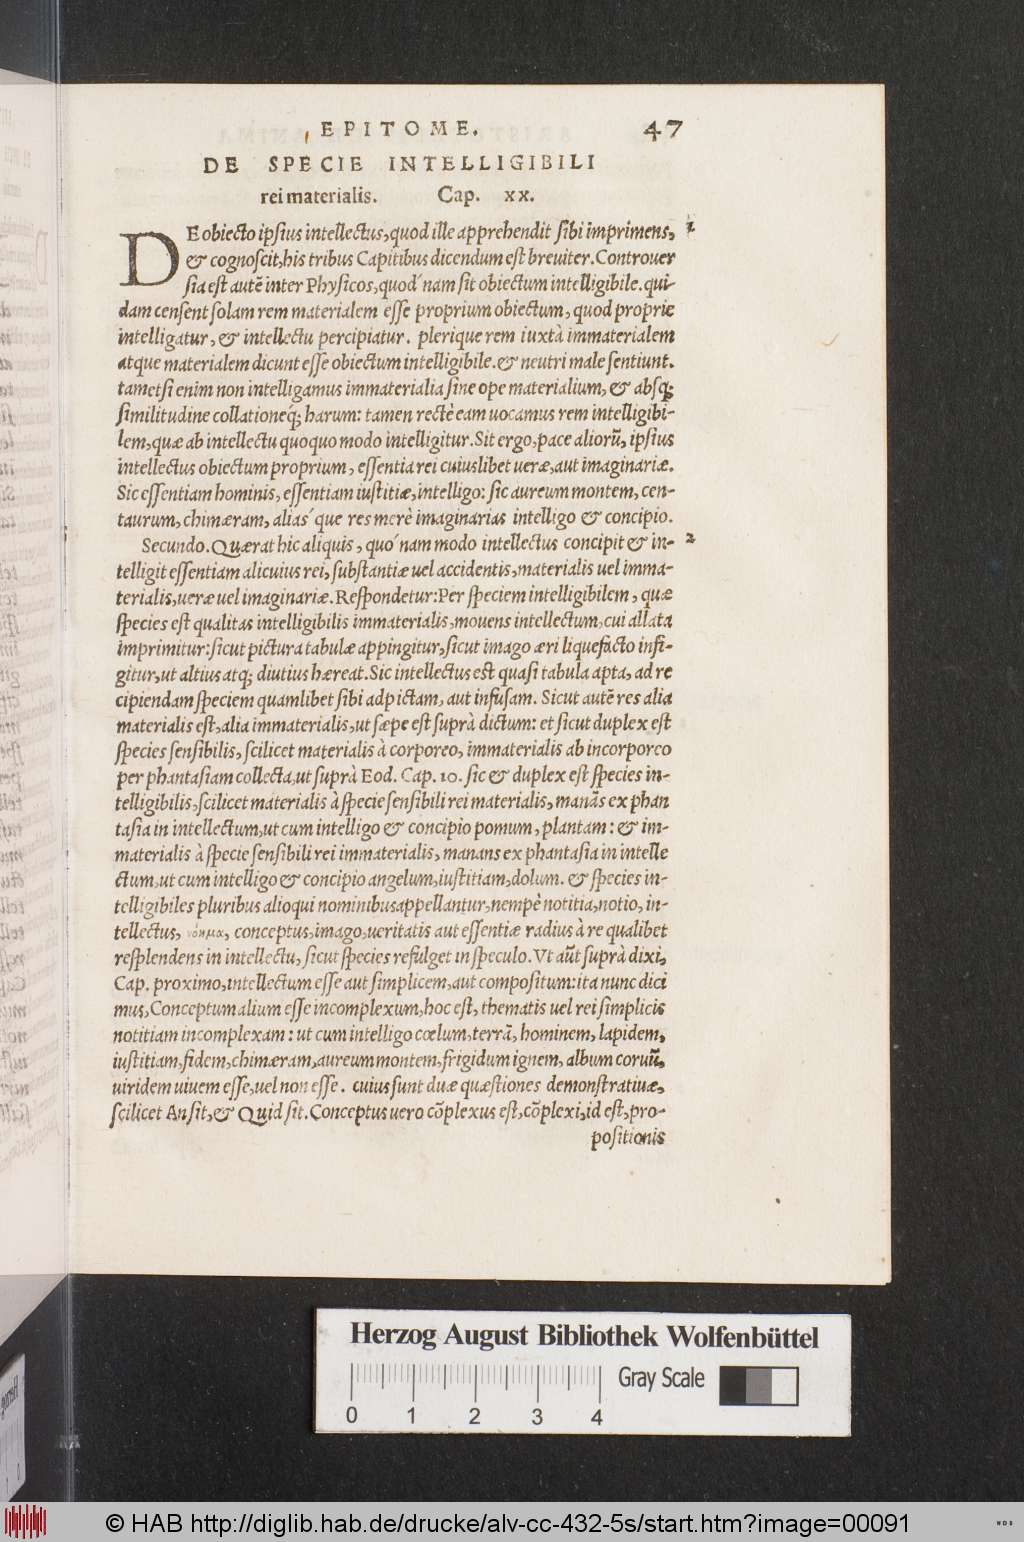 EPITOME. 47
DE SPECIE INTELLIGIBILI
rei materialis. Cap. xx.
DE obiecto ipsius intellectus, quod ille apprehendit sibi imprimens, 1
& cognoscit, his tribus Capitibus dicendum est breuiter. Controuer
sia est autē inter Physicos, quod´nam sit obiectum intelligibile. qui-
dam censent solam rem materialem esse proprium obiectum, quod proprie
intelligatur, & intellectu percipiatur. plerique rem iuxtà immaterialem
atque materialem dicunt esse obiectum intelligibile. & neutri male sentiunt.
tametsi enim non intelligamus immaterialia sine ope materialium, & absq;
similitudine collationeq́; harum: tamen rectè eam uocamus rem intelligibi-
lem, quæ ab intellectu quoquo modo intelligitur. Sit ergo, pace aliorū, ipsius
intellectus obiectum proprium, essentia rei cuiuslibet ueræ, aut imaginariæ.
Sic essentiam hominis, essentiam iustitiæ, intelligo: sic aureum montem, cen-
taurum, chimæram, alias´que res merè imaginarias intelligo & concipio.
Secundo. Quærat hic aliquis, quo´nam modo intellectus concipit & in- 2
telligit essentiam alicuius rei, substantiæ uel accidentis, materialis uel imma-
terialis, ueræ uel imaginariæ. Respondetur: Per speciem intelligibilem, quæ
species est qualitas intelligibilis immaterialis, mouens intellectum, cui allata
imprimitur: sicut pictura tabulæ appingitur, sicut imago æri liquefacto infi-
gitur, ut altius atq; diutius hæreat. Sic intellectus est quasi tabula apta, ad re
cipiendam speciem quamlibet sibi adpictam, aut infusam. Sicut autē res alia
materialis est, alia immaterialis, ut sæpe est suprà dictum: et sicut duplex est
species sensibilis, scilicet materialis à corporeo, immaterialis ab incorporeo
per phantasiam collecta, ut suprà Eod. Cap. 10. sic & duplex est species in-
telligibilis, scilicet materialis à specie sensibili rei materialis, manās ex phan
tasia in intellectum, ut cum intelligo & concipio pomum, plantam: & im-
materialis à specie sensibili rei immaterialis, manans ex phantasia in intelle
ctum, ut cum intelligo & concipio angelum, iustitiam, dolum. & species in-
telligibiles pluribus alioqui nominibus appellantur, nempè notitia, notio, in-
tellectus, νόημα, conceptus, imago, ueritatis aut essentiæ radius à re qualibet
resplendens in intellectu, sicut species refulget in speculo. Vt aūt suprà dixi,
Cap. proximo, intellectum esse aut simplicem, aut compositum: ita nunc dici
mus, Conceptum alium esse incomplexum, hoc est, thematis uel rei simplicis
notitiam incomplexam: ut cum intelligo cœlum, terrā, hominem, lapidem,
iustitiam, fidem, chimæram, aureum montem, frigidum ignem, album coruū,
uiridem uiuem esse, uel non esse. cuius sunt duæ quæstiones demonstratiuæ,
scilicet An sit, & Quid sit. Conceptus uero cōplexus est, cōplexi, id est, pro-
positionis
Herzog August Bibliothek Wolfenbüttel
Gray Scale
0 1 2 3 4
© HAB http://diglib.hab.de/drucke/alv-cc-432-5s/start.htm?image=00091
WDB